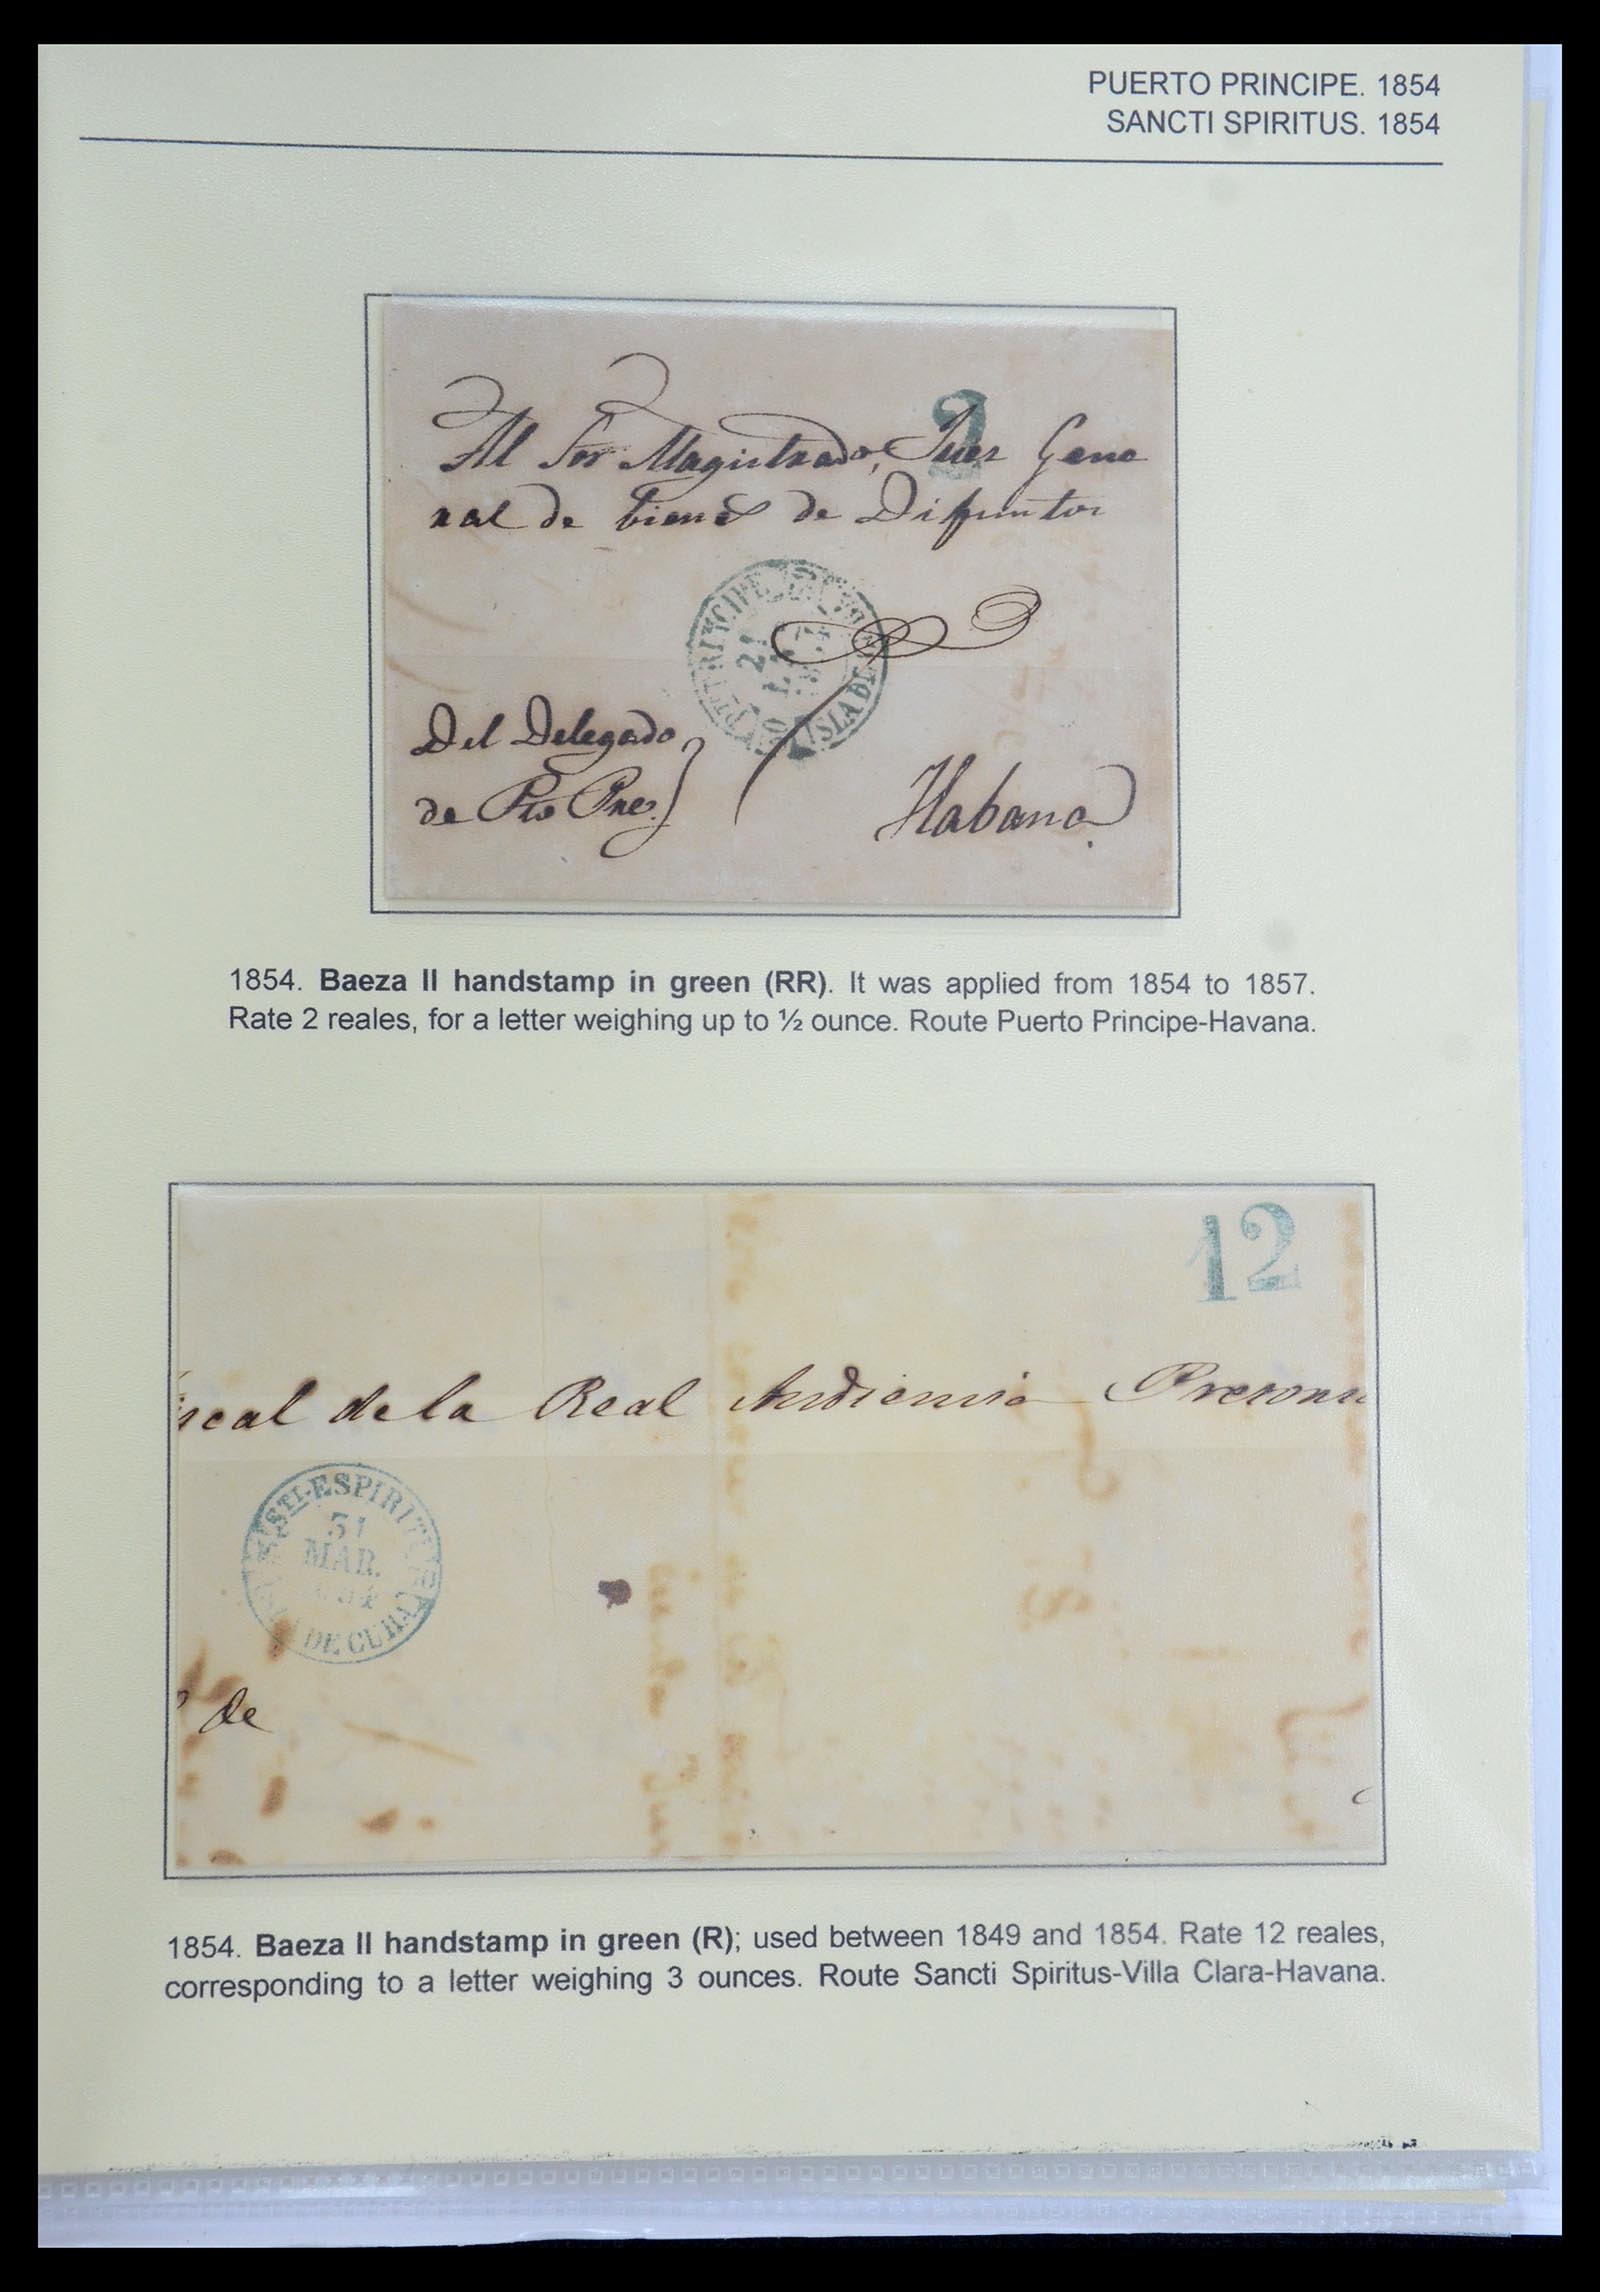 PUERTO PRINCIPE. 1854
SANCTI SPIRITUS. 1854
2
Al Sor Magistrado, Juez Gene
ral de bienes de Difuntos
PTO. PRINCIPE
21
ISLA DE
Del Delegado
de Pto Pne.
Habana
1854. Baeza II handstamp in green (RR). It was applied from 1854 to 1857.
Rate 2 reales, for a letter weighing up to ½ ounce. Route Puerto Principe-Havana.
12
iscal de la Real Audiencia Pretori
STI-ESPIRITUS
31
MAR.
1854
ISLA DE CUBA
de
1854. Baeza II handstamp in green (R); used between 1849 and 1854. Rate 12 reales,
corresponding to a letter weighing 3 ounces. Route Sancti Spiritus-Villa Clara-Havana.